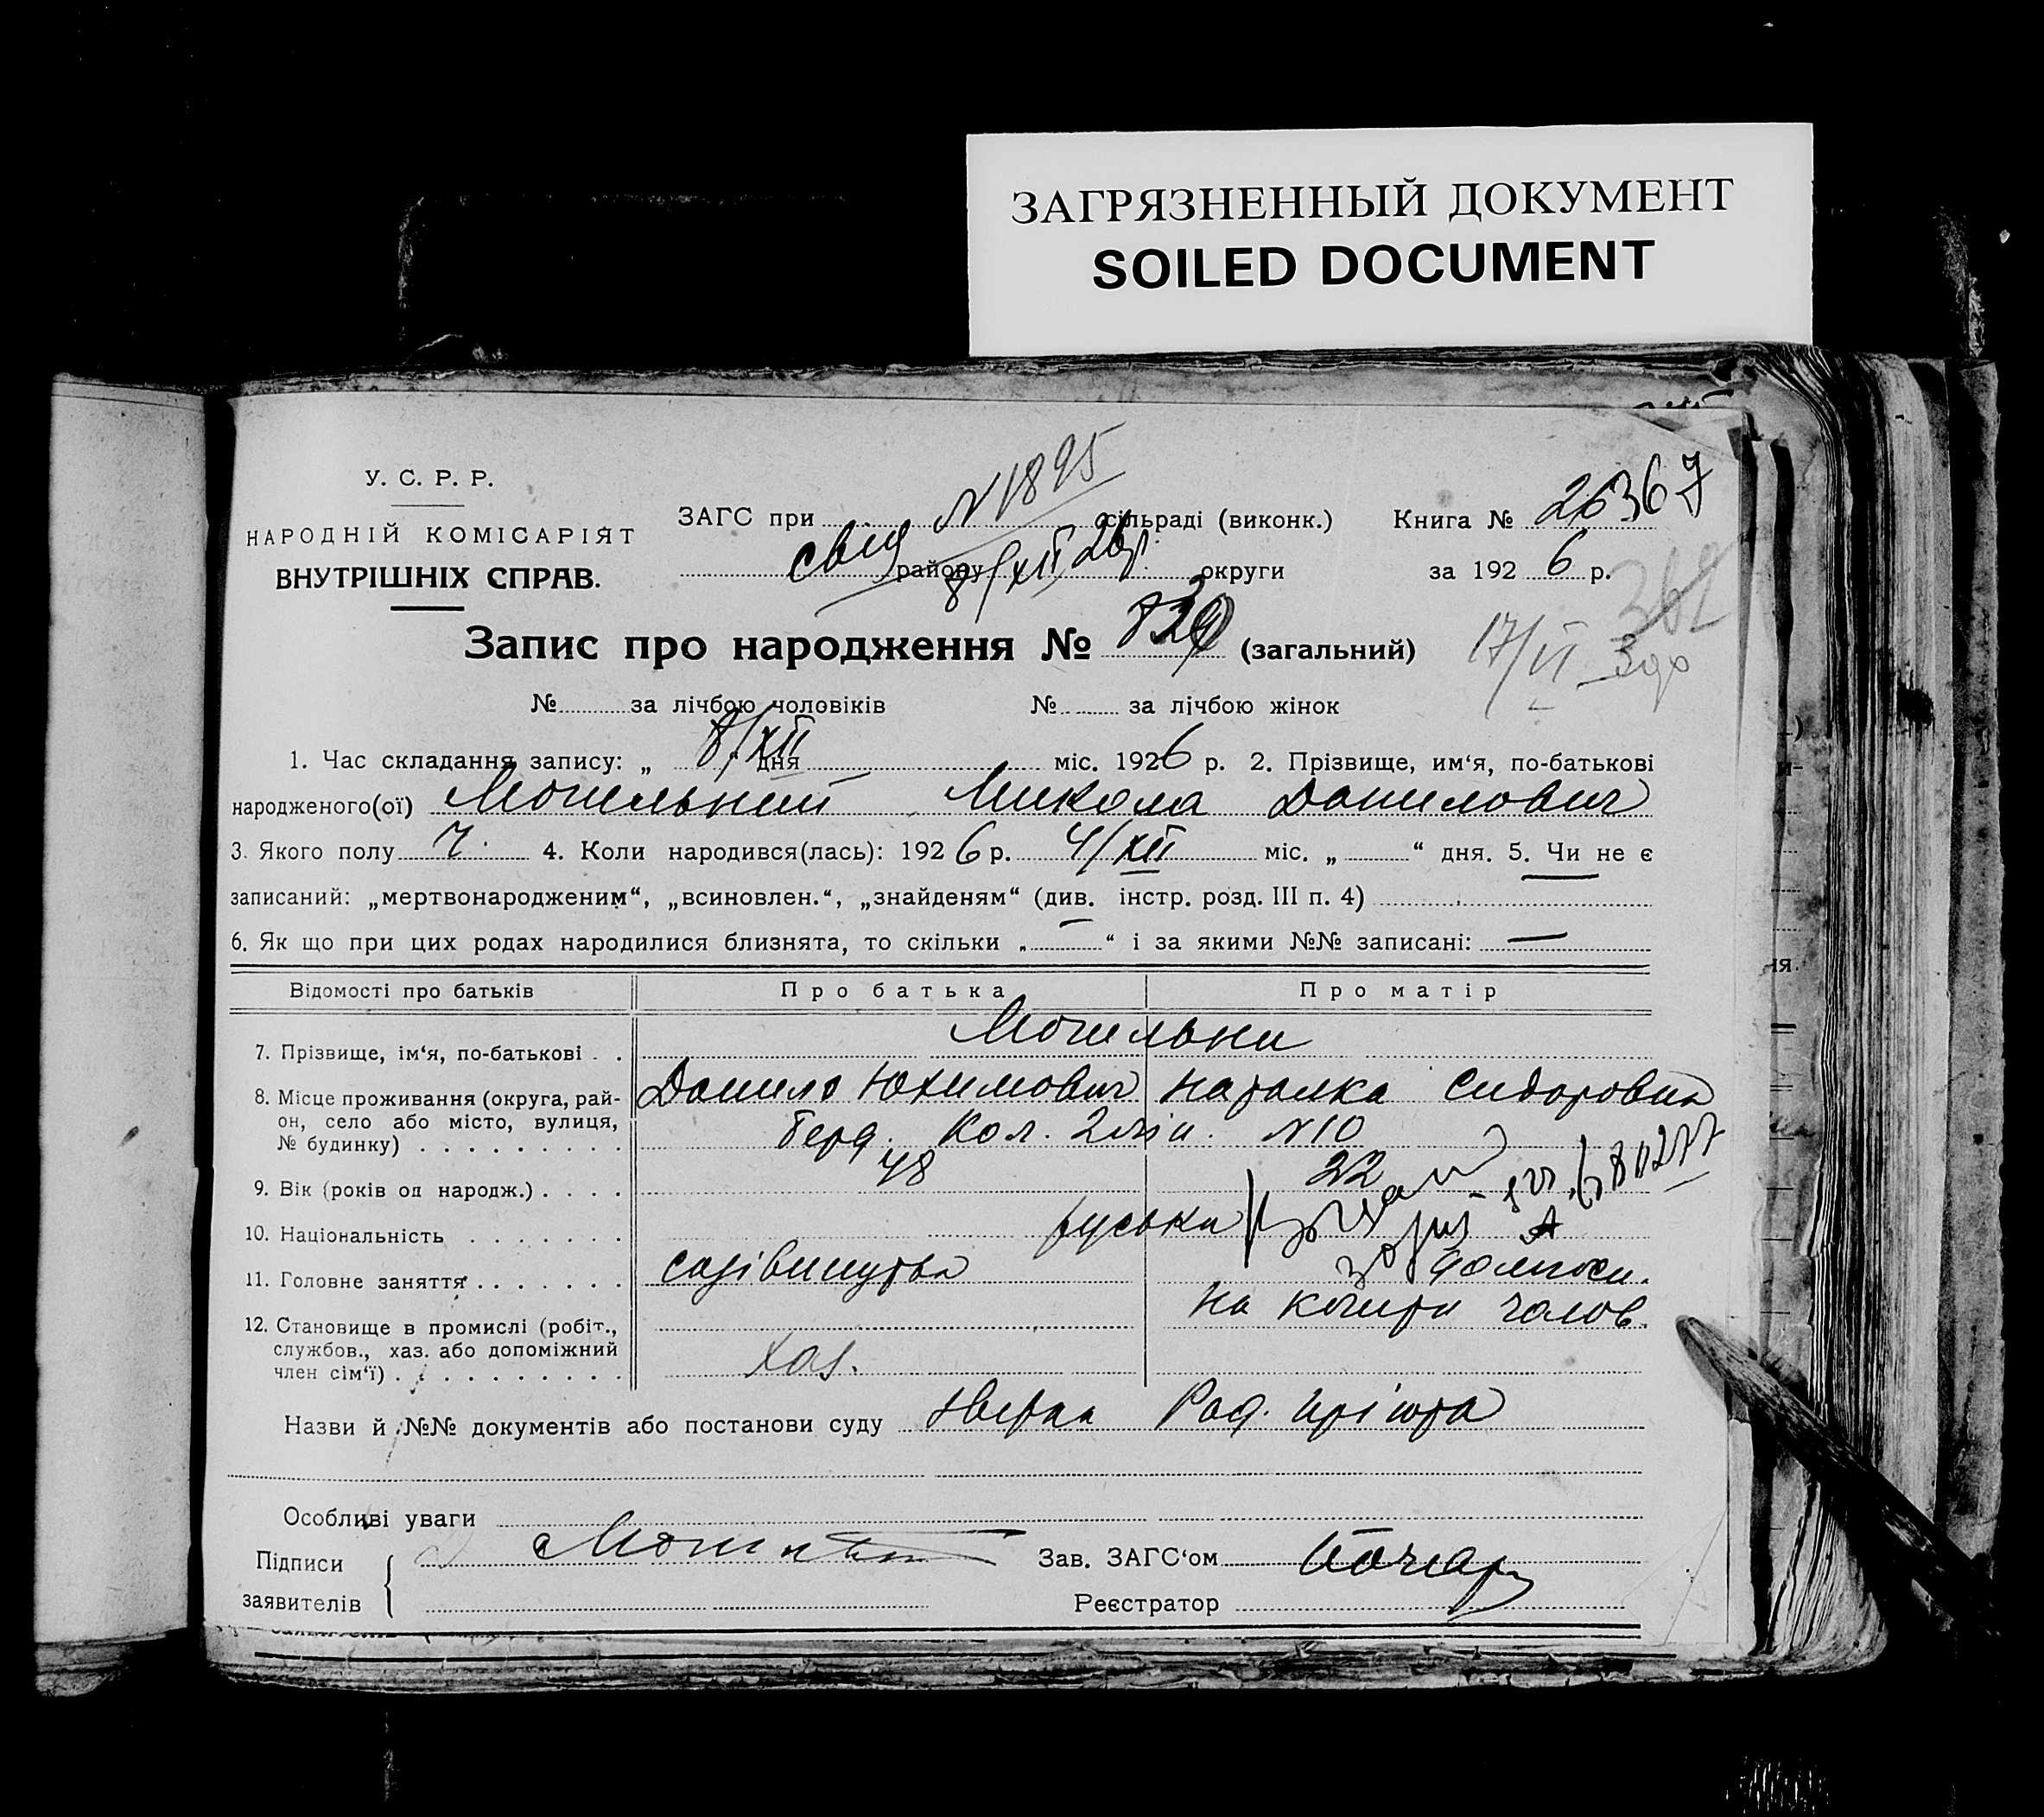 ЗАГРЯЗНЕННЫЙ ДОКУМЕНТ
SOILED DOCUMENT
У. С. Р. Р.
НАРОДНІЙ КОМІСАРІЯТ
ВНУТРІШНІХ СПРАВ.
N 1895
ЗАГС при сільраді (виконк.) Книга №
свід 8/XII 26р.
району округи за 1926 р.
Запис про народження № (загальний)
17/VI
№ за лічбою чоловіків № за лічбою жінок
1. Час складання запису: „ 8/XII дня міс. 1926 р. 2. Прізвище, им‘я, по-батькові
народженого(ої) Могильний Микола Данилович
3. Якого полу ч. 4. Коли народився(лась): 1926 р. 4/XII міс. „ “ дня. 5. Чи не є
записаний: „мертвонародженим“, „всиновлен.“, „знайденям“ (див. інстр. розд. III п. 4)
6. Як що при цих родах народилися близнята, то скільки „ — “ і за якими №№ записані: —
Відомості про батьків Про батька Про матір
7. Прізвище, ім‘я, по-батькові . . Могильни
Данило Юхимович Наталка Сидоровна
8. Місце проживання (округа, рай-
он, село або місто, вулиця,
№ будинку) . . . . . . . . . Кол. N 10
9. Вік (років од народж.) . . . . 48 22
10. Національність . . . . . . . руськи
11. Головне заняття . . . . . . .
на чолов.
12. Становище в промислі (робіт.,
службов., хаз. або допоміжний
член сім‘ї) . . . . . . . . . . хаз.
Назви й №№ документів або постанови суду
Особливі уваги
Підписи
заявителів
Зав. ЗАГС‘ом
Реєстратор